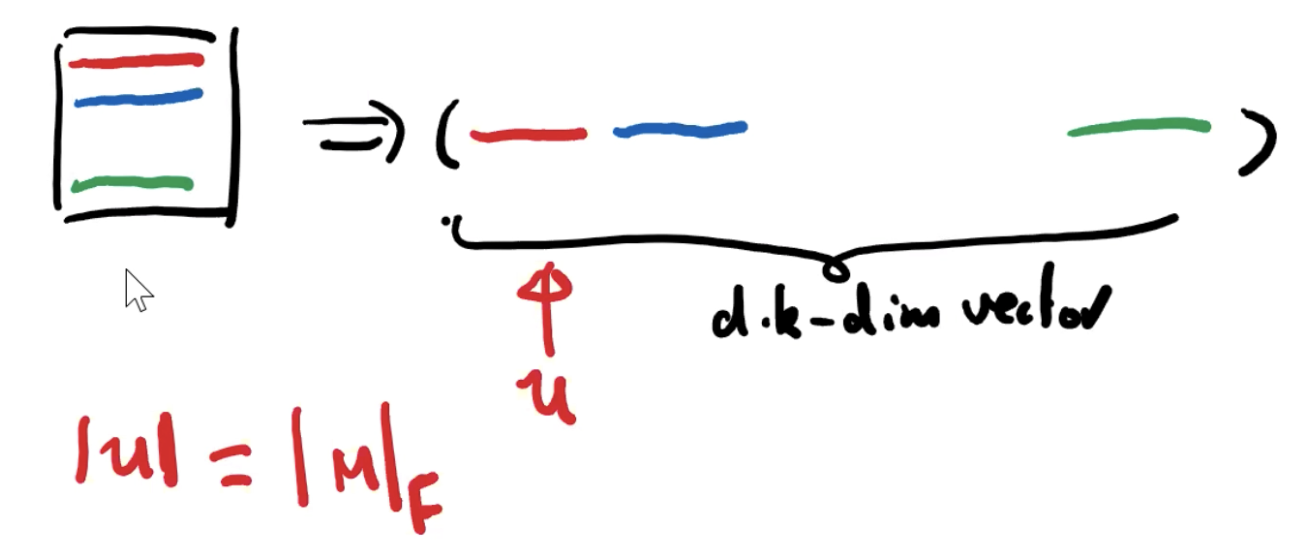 ⇒ ( )
d·k-dim vector
u
|u| = |M|_F